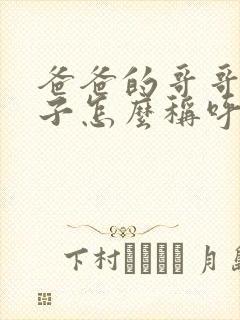 爸爸的哥哥
子怎麼稱呼
下村 月島